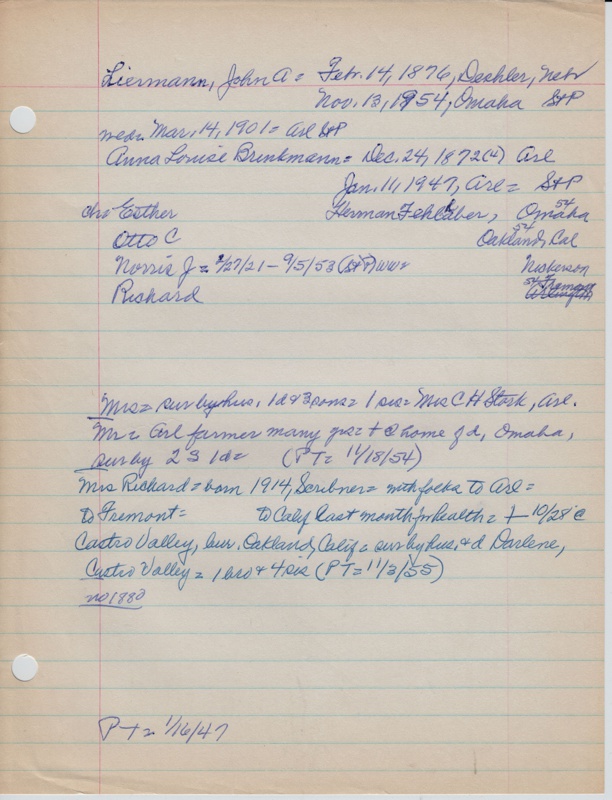 Liermann, John A = Feb. 14, 1876, Deshler, Nebr
Nov. 13, 1954, Omaha St P
wed = Mar. 14, 1901 = Arl St P
Anna Louise Brinkmann = Dec. 24, 1872(4) Arl
Jan. 11, 1947, Arl = St P
ch = Esther Herman Fehlaber, Omaha 54
Otto C Oakland, Cal 54
Norris J = 2/27/21 - 9/5/53 (St P) WW2 Nickerson
Richard 54 Fremont Arlington
Mrs = sur by hus, 1 d & 3 sons = 1 sis = Mrs C H Stork, Arl.
Mr = Arl farmer many yrs = + @ home of d, Omaha,
sur by 2 S 1 d = (PT = 11/18/54)
Mrs Richard = born 1914, Scribner = with folks to Arl =
to Fremont = to Calif last month for health = + 10/28 @
Castro Valley, bur. Oakland, Calif = sur by hus. & d Darlene,
Castro Valley = 1 bro & 4 sis (PT = 11/3/55)
no 1880
PT = 1/16/47